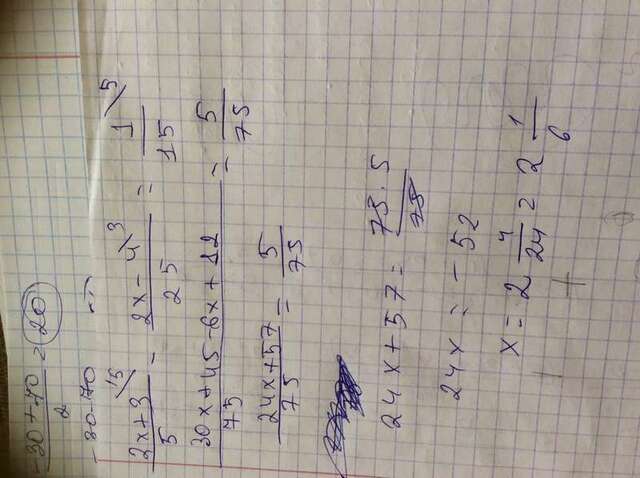 -30+70/2 = 20
-30-70
2x+3\15/5 - 2x-4\3/25 = 1\5/15
30x+45-6x+12/75 = 5/75
24x+57/75 = 5/75
24x+57= 75·5/75
24x = -52
x = 2 4/24 = 2 1/6